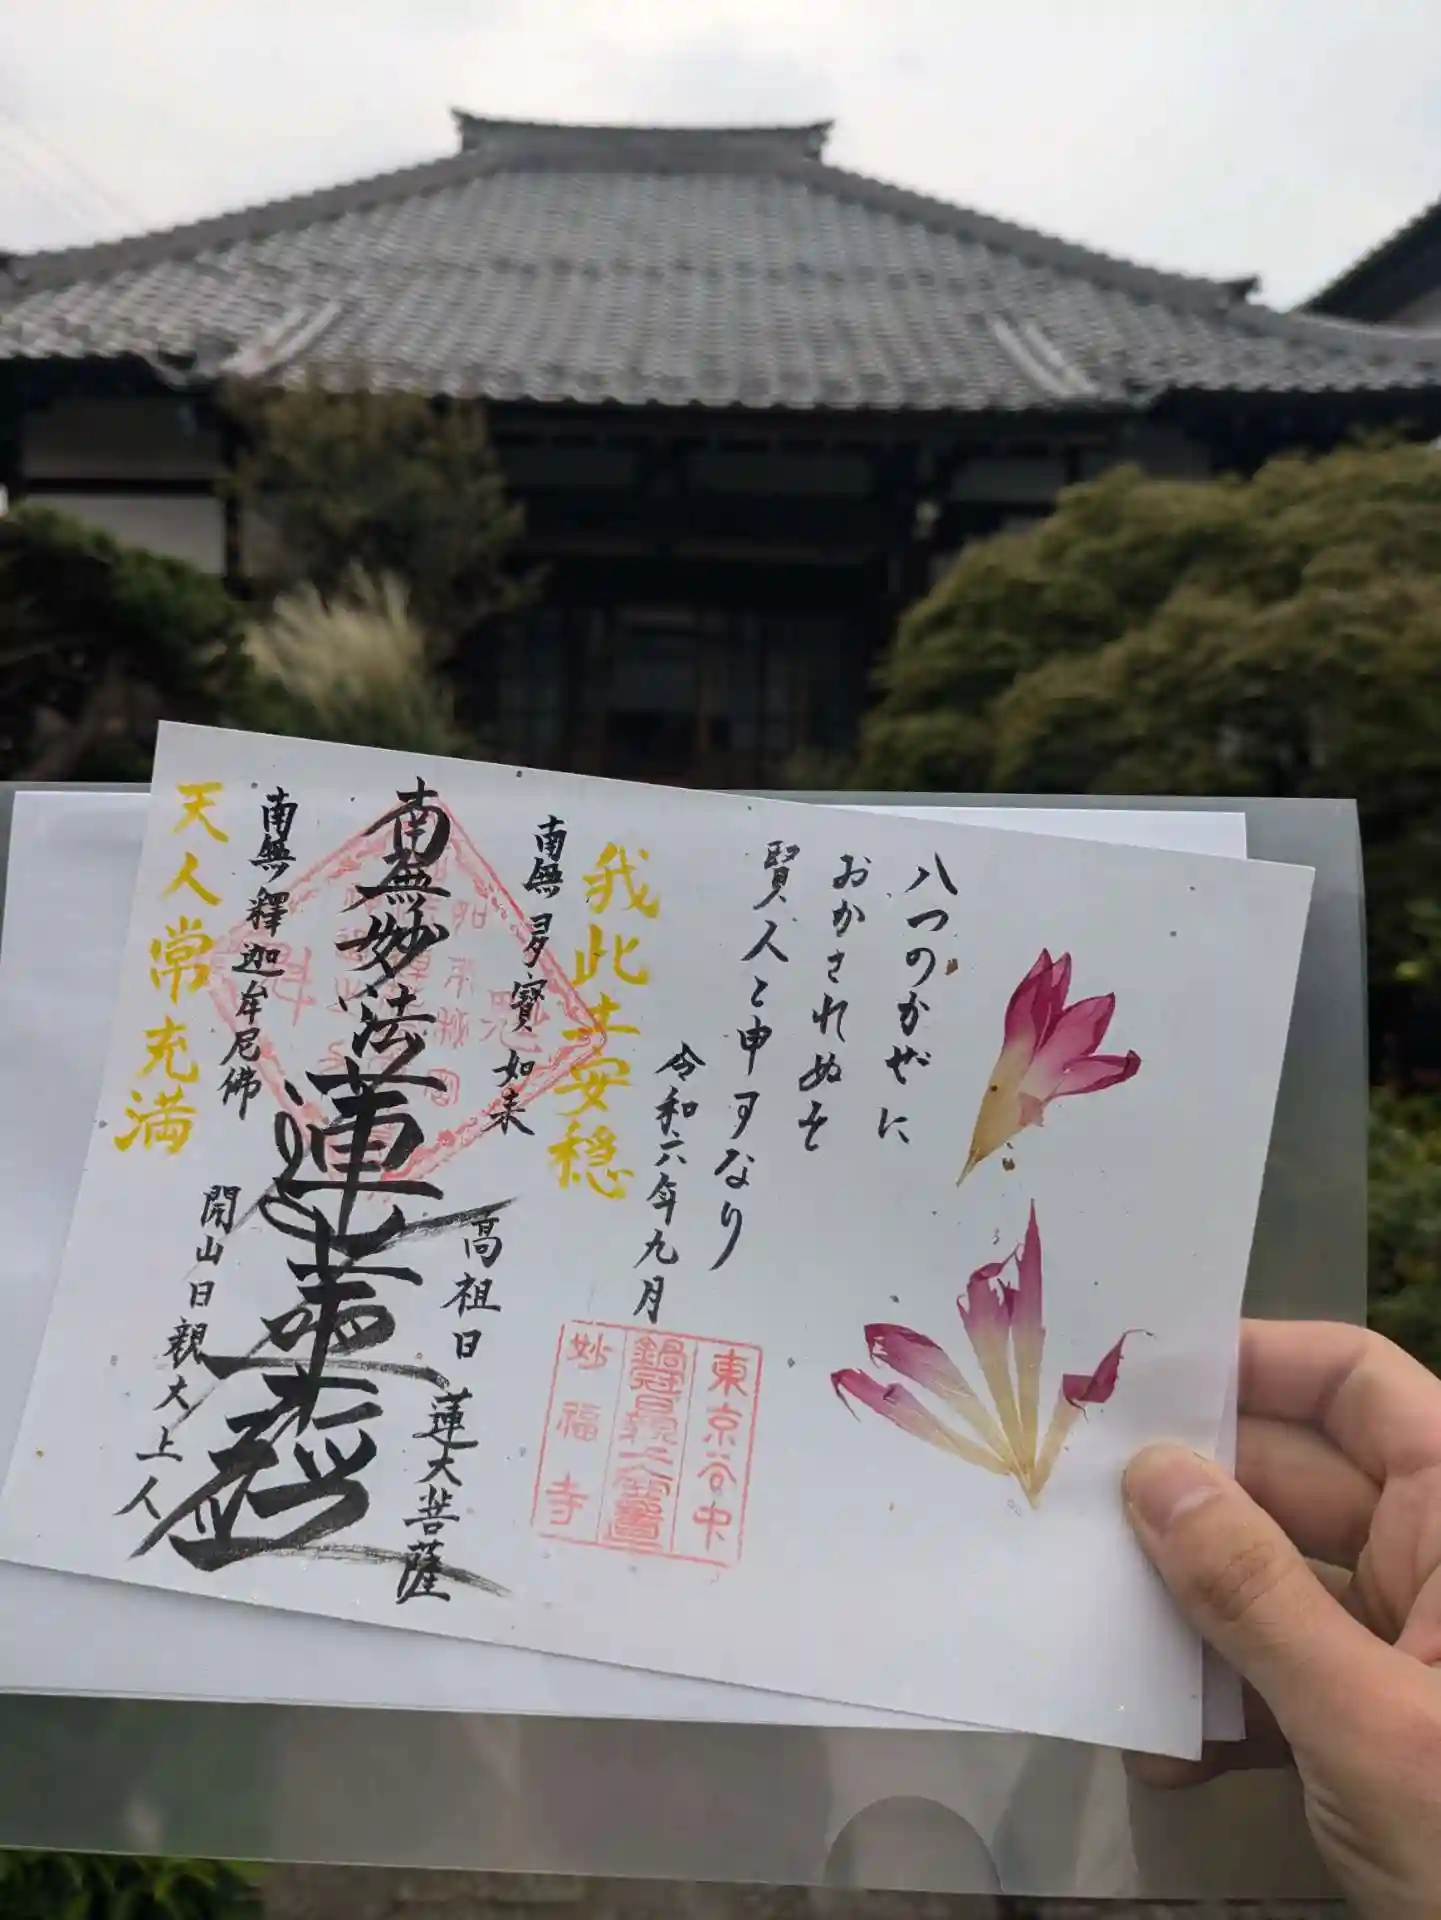 八つのかぜに
おかされぬを
賢人と申すなり
令和六年九月
東京谷中
鍋冠日親大菩薩
妙福寺
我此土安穏
南無多寶如来
高祖日蓮大菩薩
南無妙法蓮華経
南無釋迦牟尼佛
開山日親大上人
天人常充満